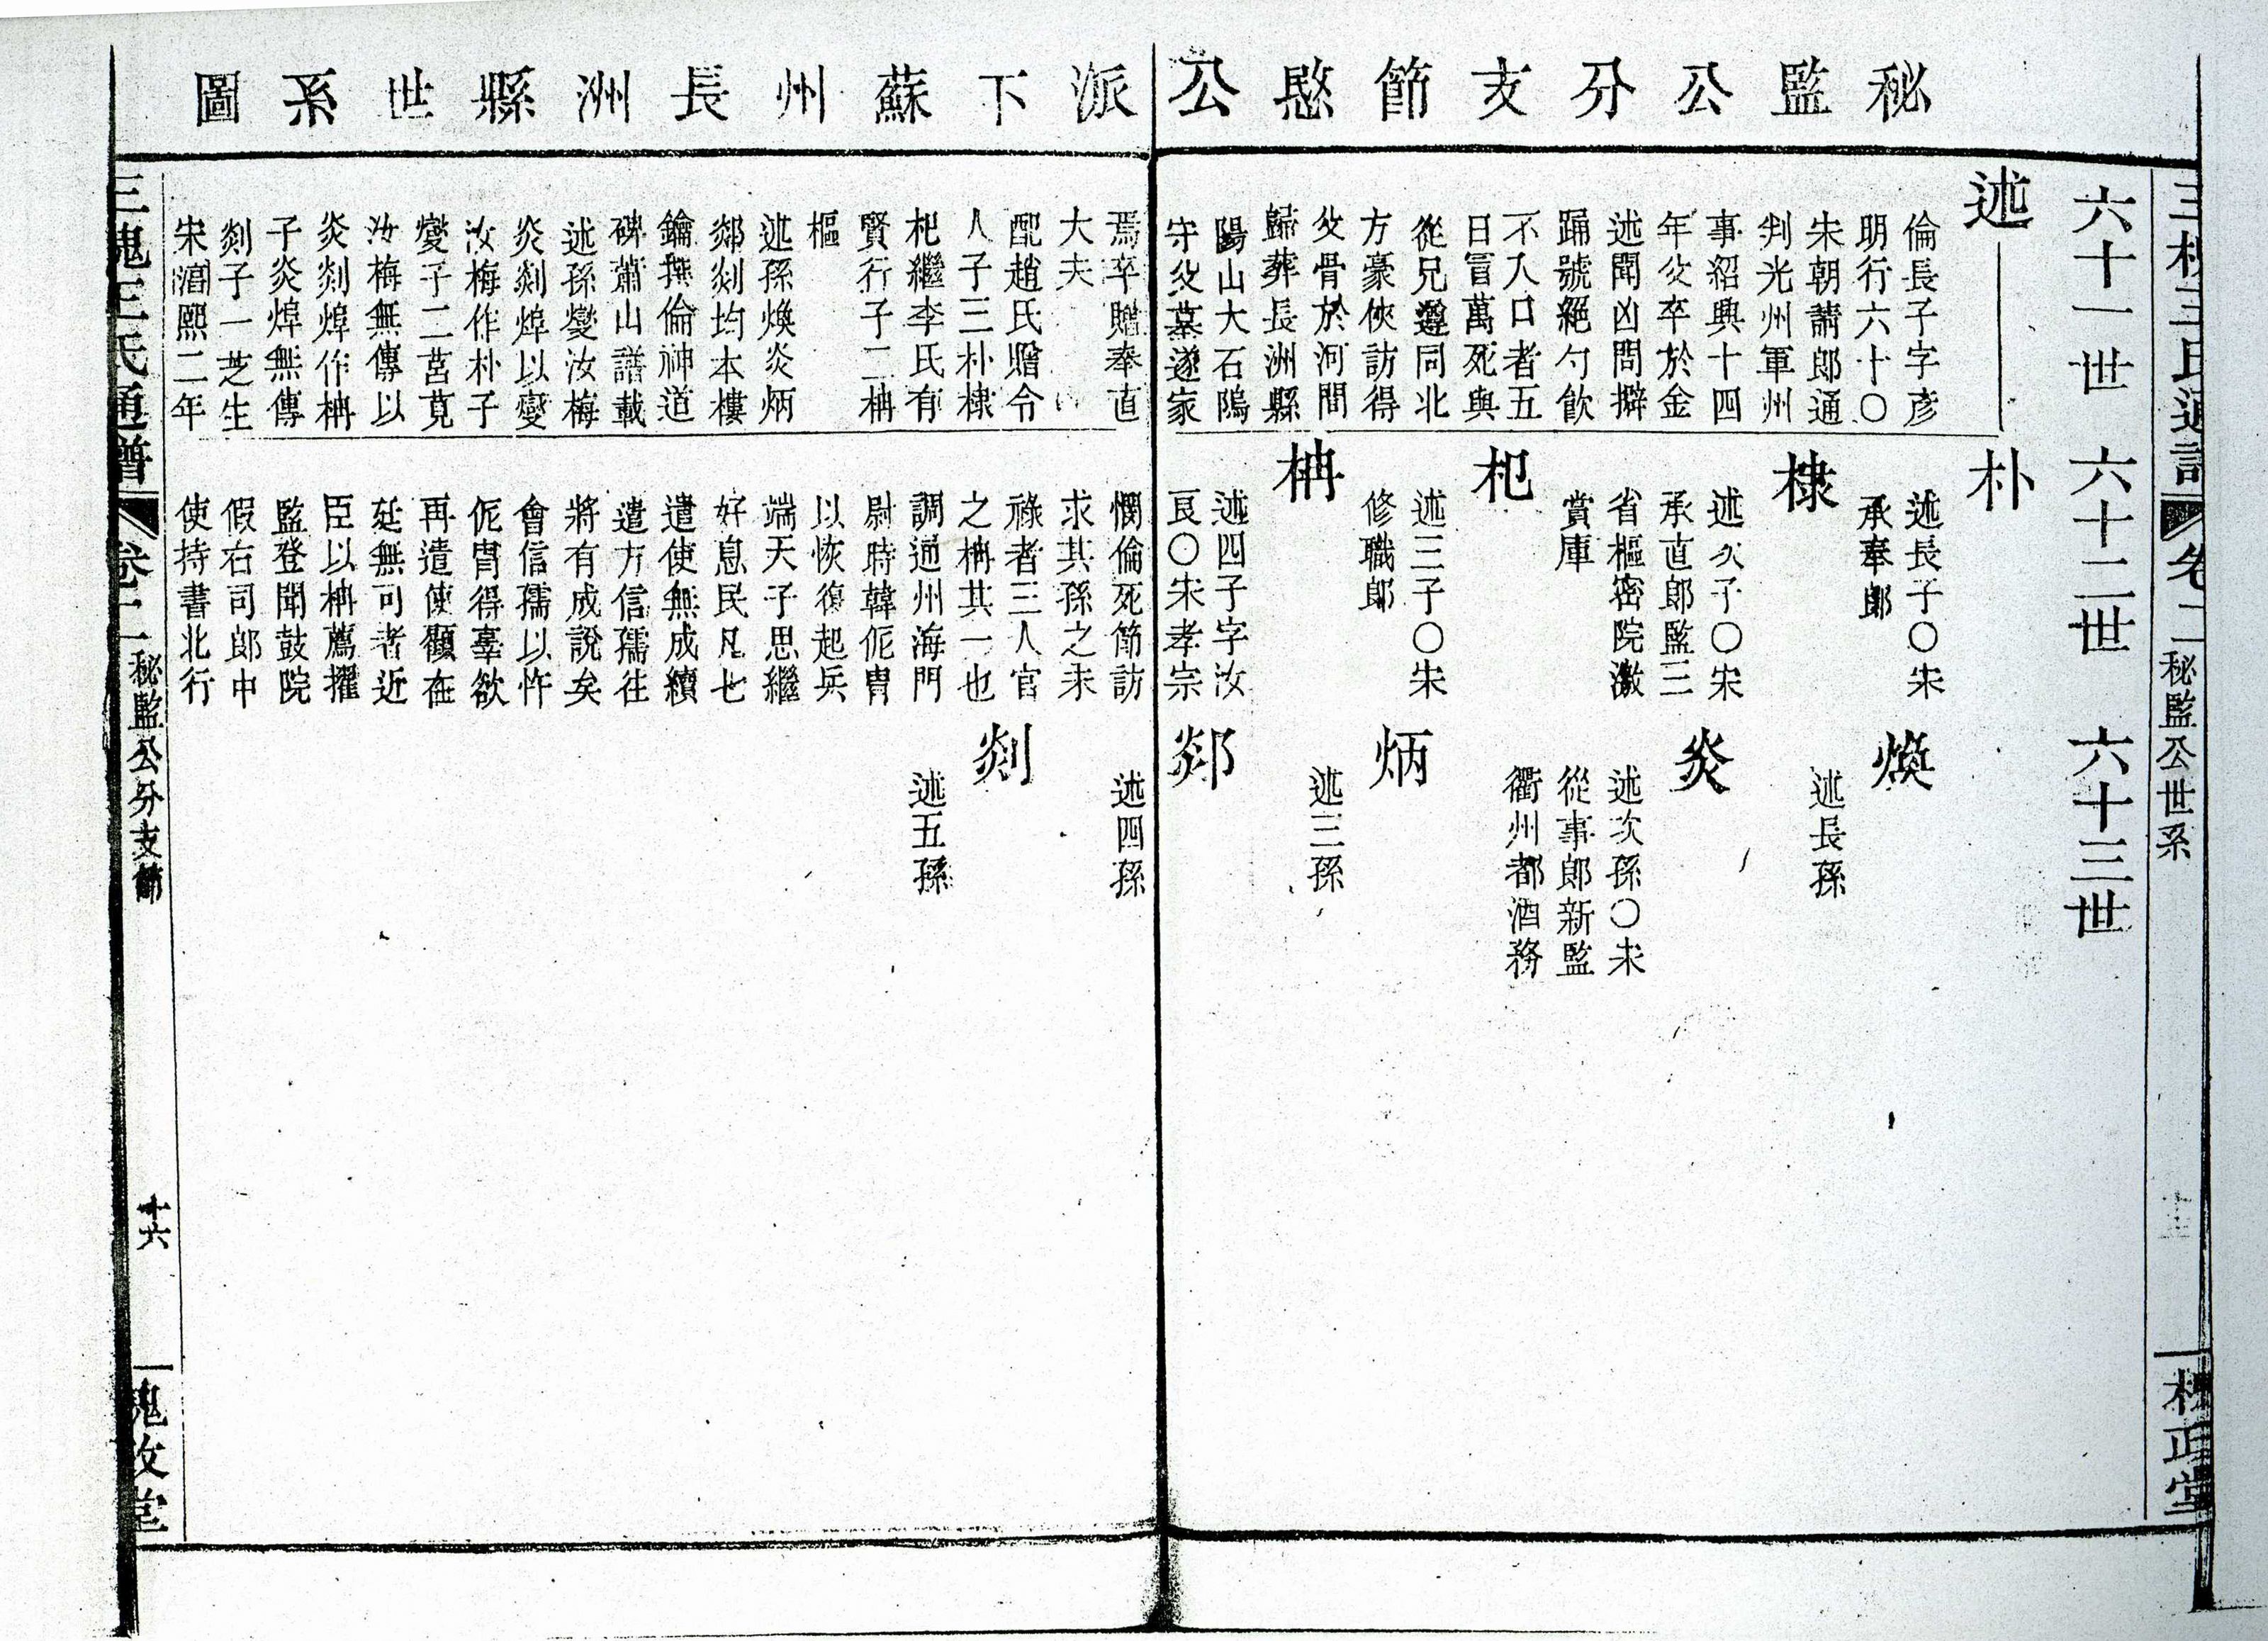 秘監公分支節愍公派下蘇州長洲縣世系圖
六十一世
六十二世
六十三世
述
倫長子字彥
明行六十〇
宋朝請郎通
判光州軍州
事紹興十四
年父卒於金
述聞凶問擗
踊號絕勺飲
不入口者五
日冒萬死與
從兄遵同北
方豪俠訪得
父骨於河間
歸葬長洲縣
陽山大石隖
守父墓遂家
焉卒贈奉直
大夫
配趙氏贈令
人子三朴棣
杞繼李氏有
賢行子二柟
樞
述孫煥炎炳
郯剡均本樓
鑰撰倫神道
碑蕭山譜載
述孫燮汝梅
炎剡焞以燮
汝梅作朴子
燮子二莒莧
汝梅無傳以
炎剡焞作柟
子炎焞無傳
剡子一芝生
宋淳熙二年
朴
述長子〇宋
承奉郎
棣
述次子〇宋
承直郎監三
省樞密院激
賞庫
杞
述三子〇宋
修職郎
柟
述四子字汝
良〇宋孝宗
憫倫死節訪
求其孫之未
祿者三人官
之柟其一也
調通州海門
尉時韓侂冑
以恢復起兵
端天子思繼
好息民凡七
遣使無成續
遣方信孺往
將有成說矣
會信孺以忤
侂冑得辠欲
再遣使顧在
廷無可者近
臣以柟薦擢
監登聞鼓院
假右司郎中
使持書北行
煥
述長孫
炎
述次孫〇宋
從事郎新監
衢州都酒務
炳
述三孫
郯
述四孫
剡
述五孫
三槐王氏通譜
卷二
秘監公世系
三槐王氏通譜
卷二
秘監公分支節
十六